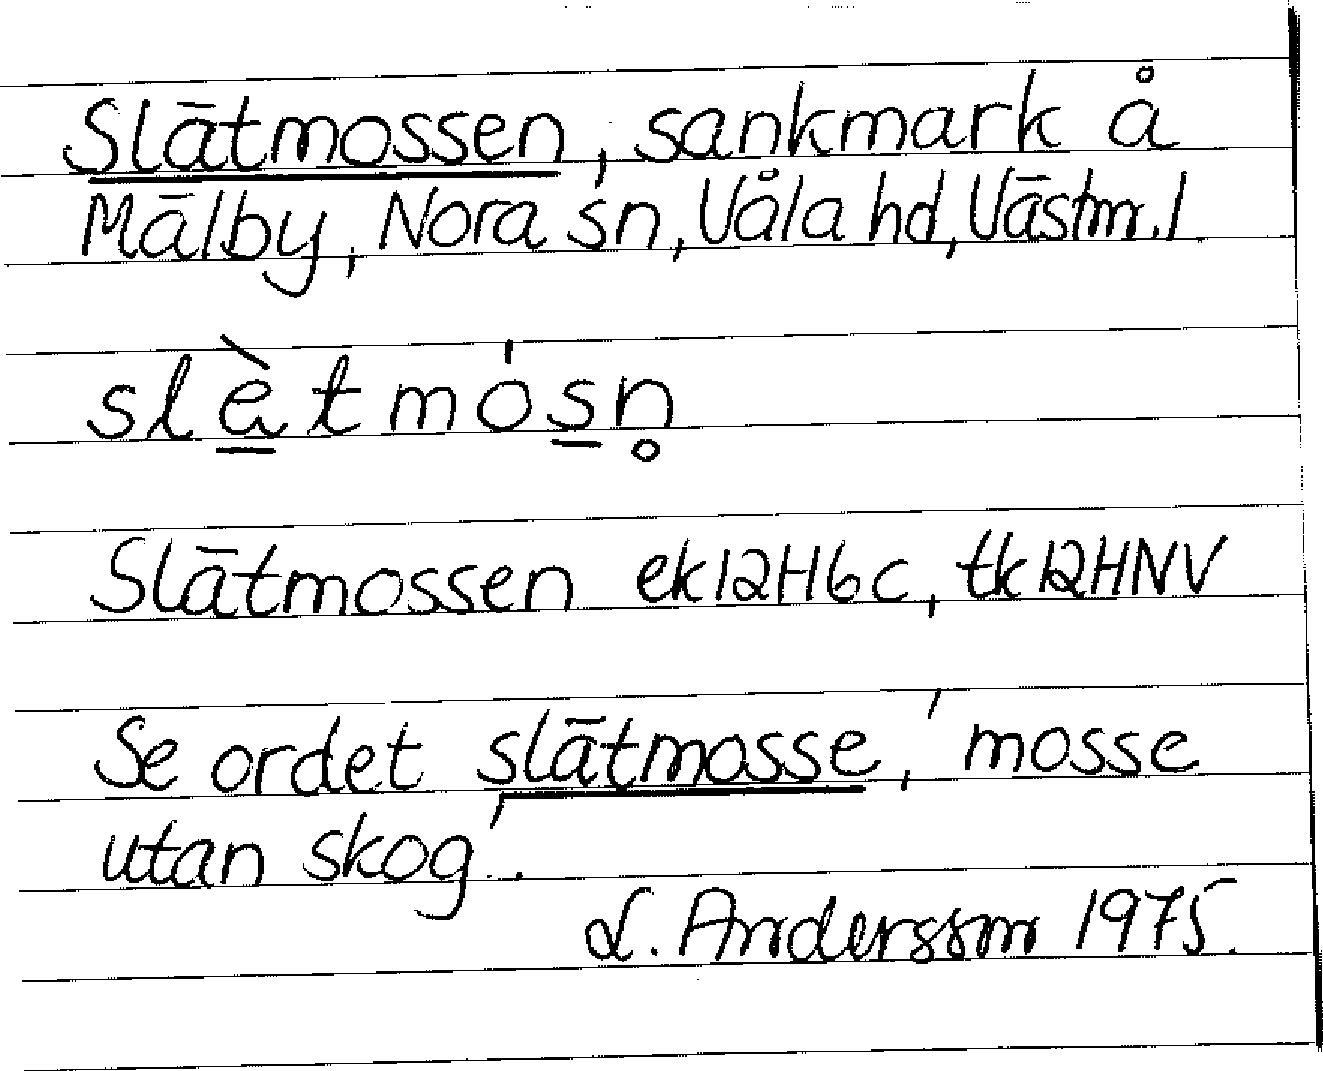 Slätmossen, sankmark å
Mälby, Nora sn, Våla hd, Västm.l
slètmósn̥
Slätmossen ek12H6c, tk12HNV
Se ordet slätmosse, 'mosse
utan skog'.
L. Andersson 1975.